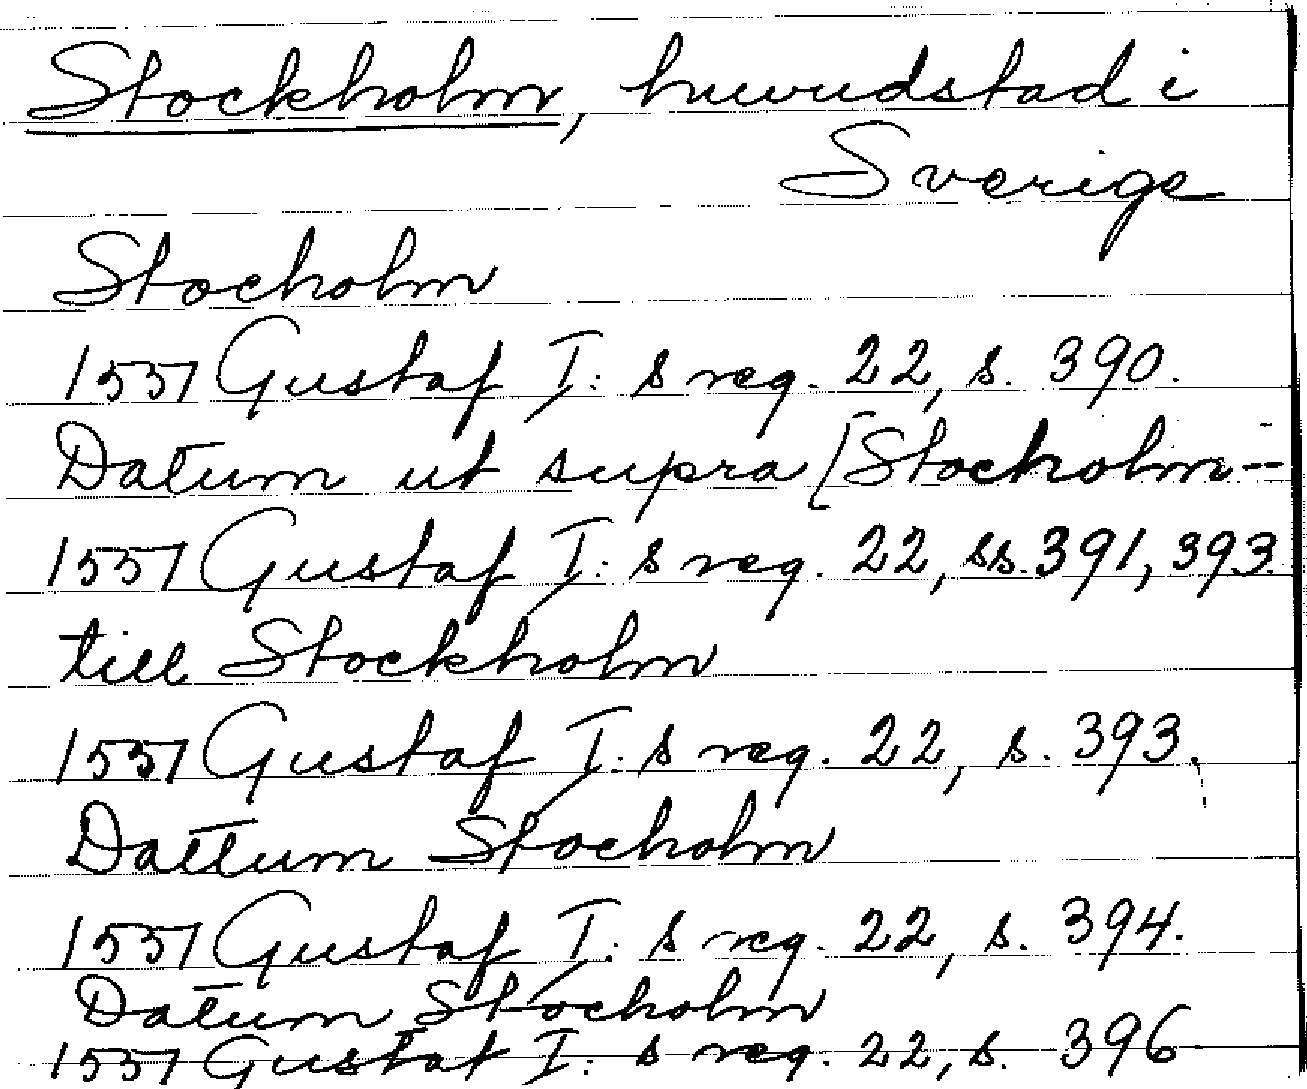 Stockholm, huvudstad i
Sverige
Stocholm
1557 Gustaf I: s reg. 22, s. 390.
Datum ut supra [Stocholm--
1557 Gustaf I: s reg. 22, ss. 391, 393.
till Stockholm
1557 Gustaf I: s reg. 22, s. 393.
Dattum Stocholm
1557 Gustaf I: s reg. 22, s. 394.
Datum Stocholm
1557 Gustaf I: s reg. 22, s. 396